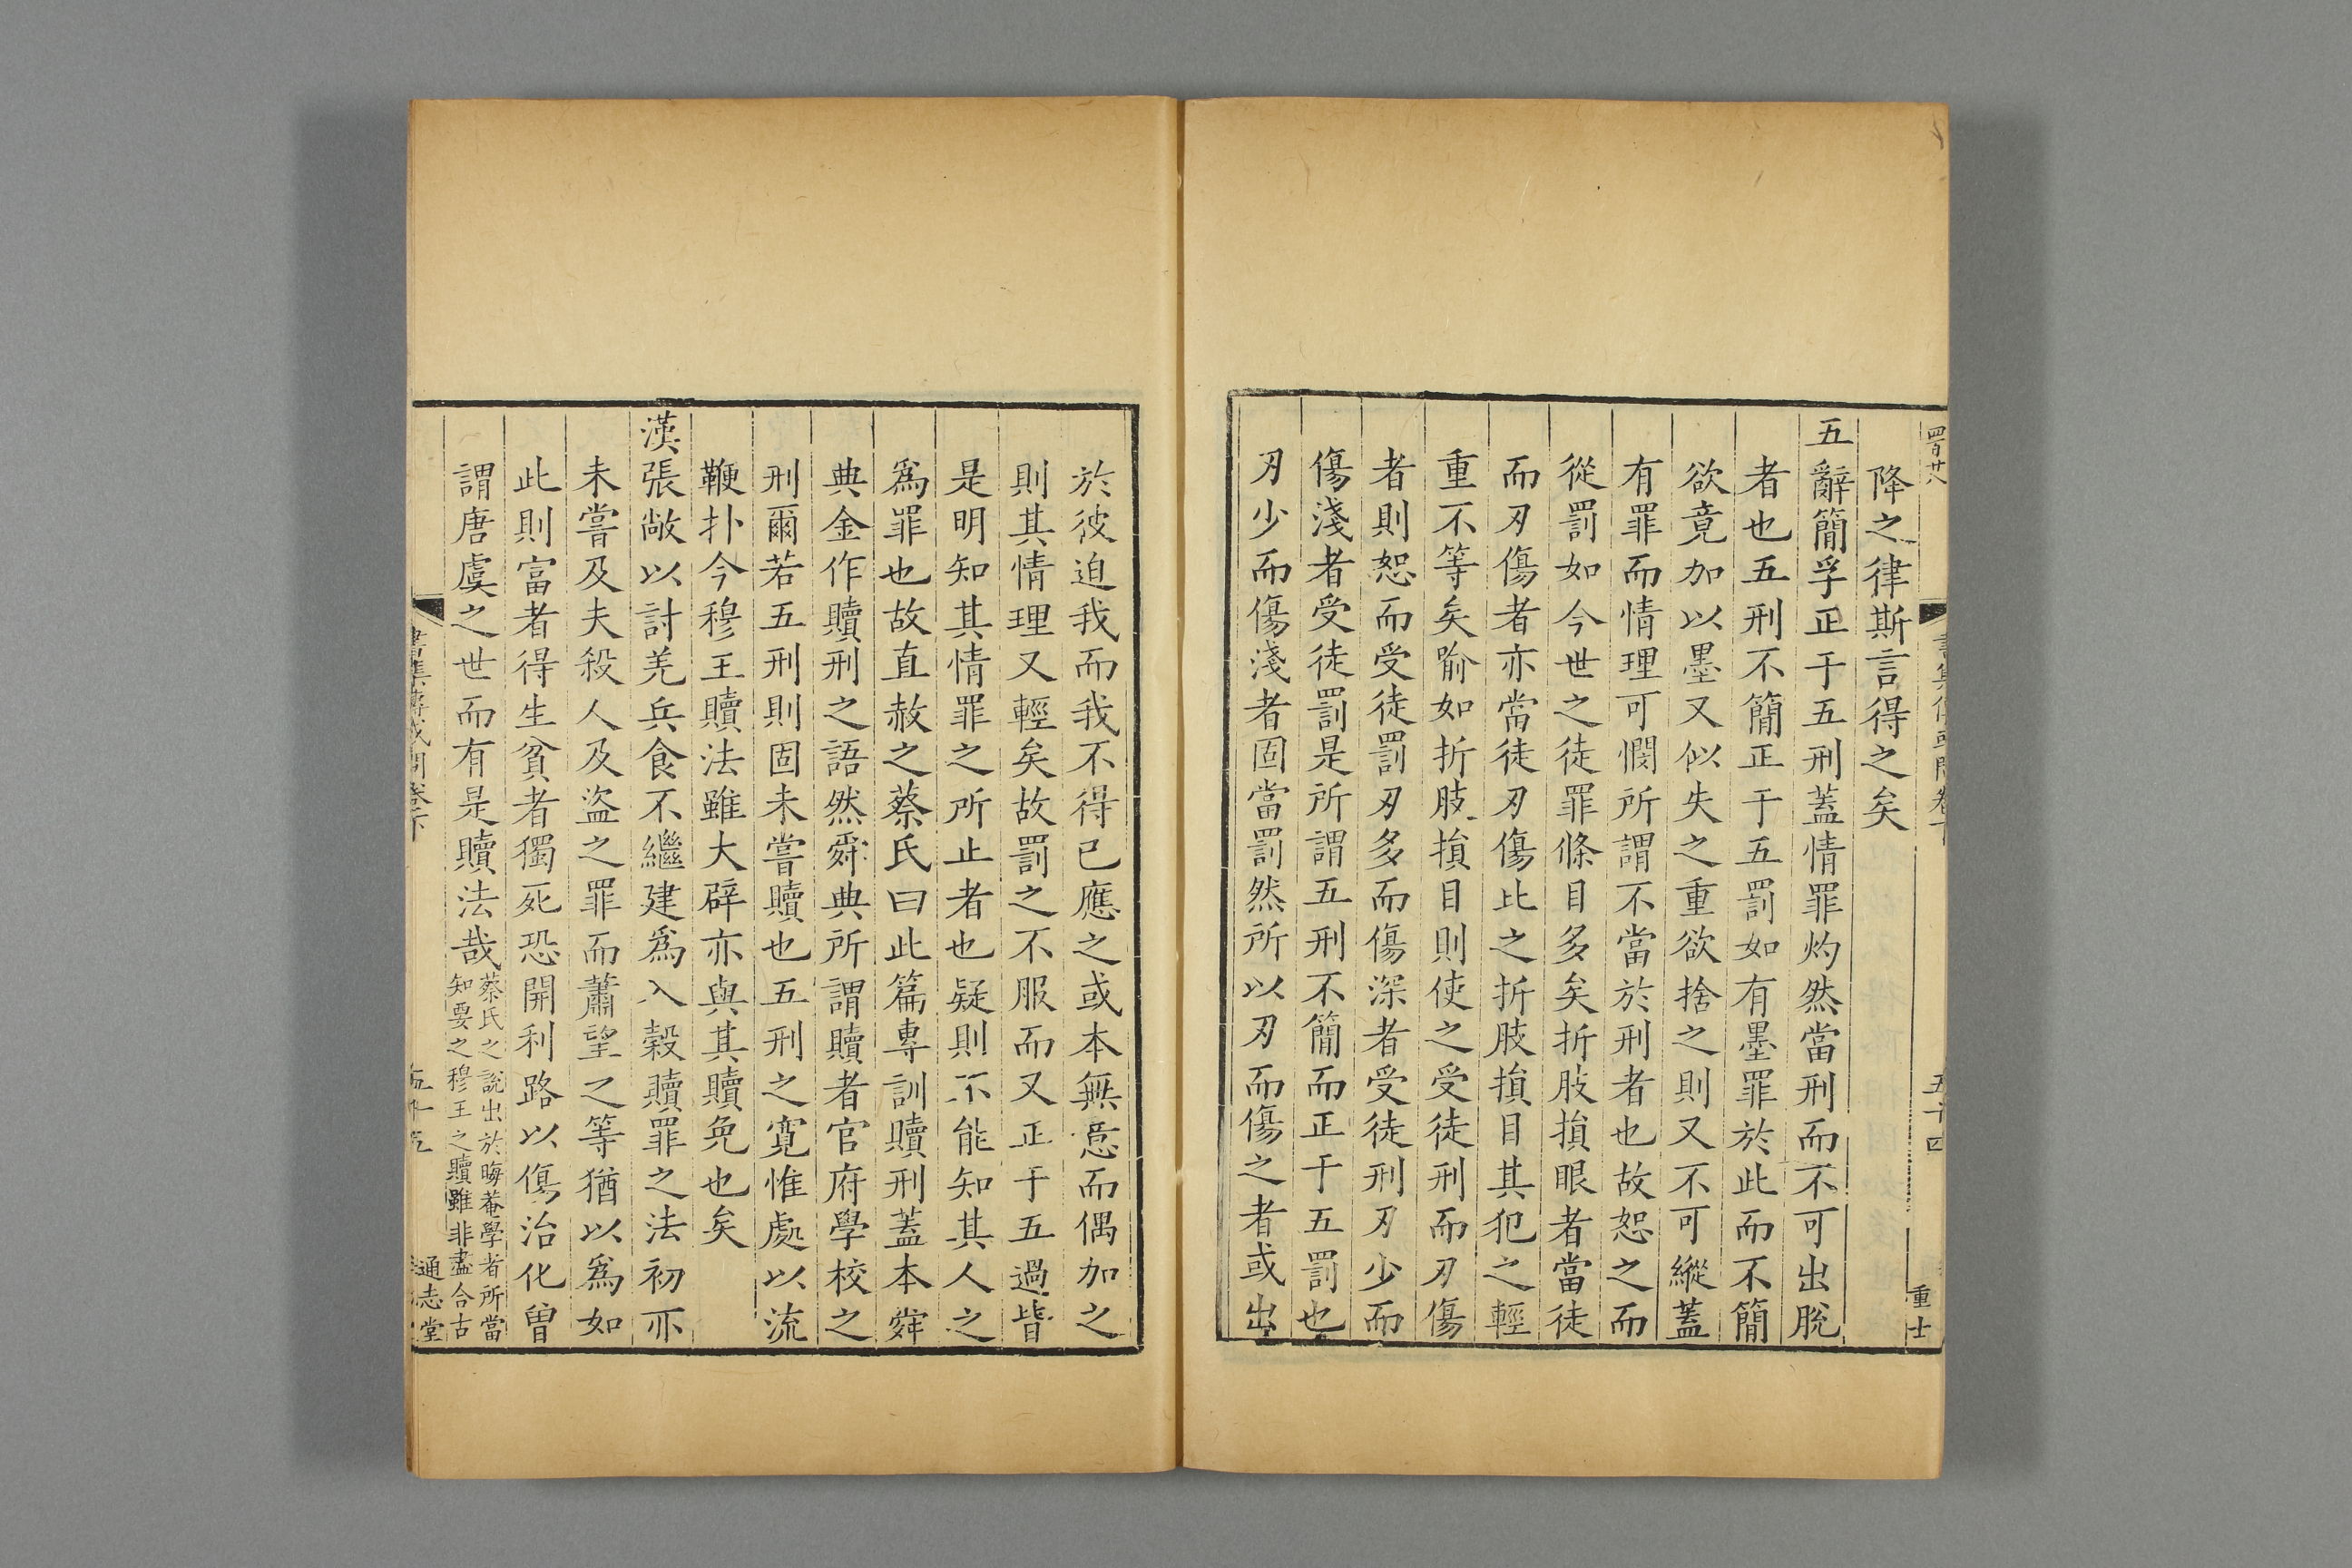 降之律斯言得之矣
五辭簡孚正于五刑蓋情罪灼然當刑而不可出脫
者也五刑不簡正于五罰如有墨罪於此而不簡
欲竟加以墨又似失之重欲捨之則又不可縱蓋
有罪而情理可憫所謂不當於刑者也故恕之而
從罰如今世之徒罪條目多矣折肢損眼者當徒
而刃傷者亦當徒刃傷比之折肢損目其犯之輕
重不等矣喻如折肢損目則使之受徒刑而刃傷
者則恕而受徒罰刃多而傷深者受徒刑刃少而
傷淺者受徒罰是所謂五刑不簡而正于五罰也
刃少而傷淺者固當罰然所以刃而傷之者或出
於彼迫我而我不得已應之或本無意而偶加之
則其情理又輕矣故罰之不服而又正于五過皆
是明知其情罪之所止者也疑則不能知其人之
爲罪也故直赦之蔡氏曰此篇專訓贖刑蓋本舜
典金作贖刑之語然舜典所謂贖者官府學校之
刑爾若五刑則固未嘗贖也五刑之寬惟處以流
鞭扑今穆王贖法雖大辟亦與其贖免也矣
漢張敞以討羌兵食不繼建爲入穀贖罪之法初亦
未嘗及夫殺人及盜之罪而蕭望之等猶以爲如
此則富者得生貧者獨死恐開利路以傷治化曽
謂唐虞之世而有是贖法哉
蔡氏之說出於晦菴學者所當
知要之穆王之贖雖非盡合古
書集傳或問卷下
五十五
通志堂
四百廿八
五十四
重士